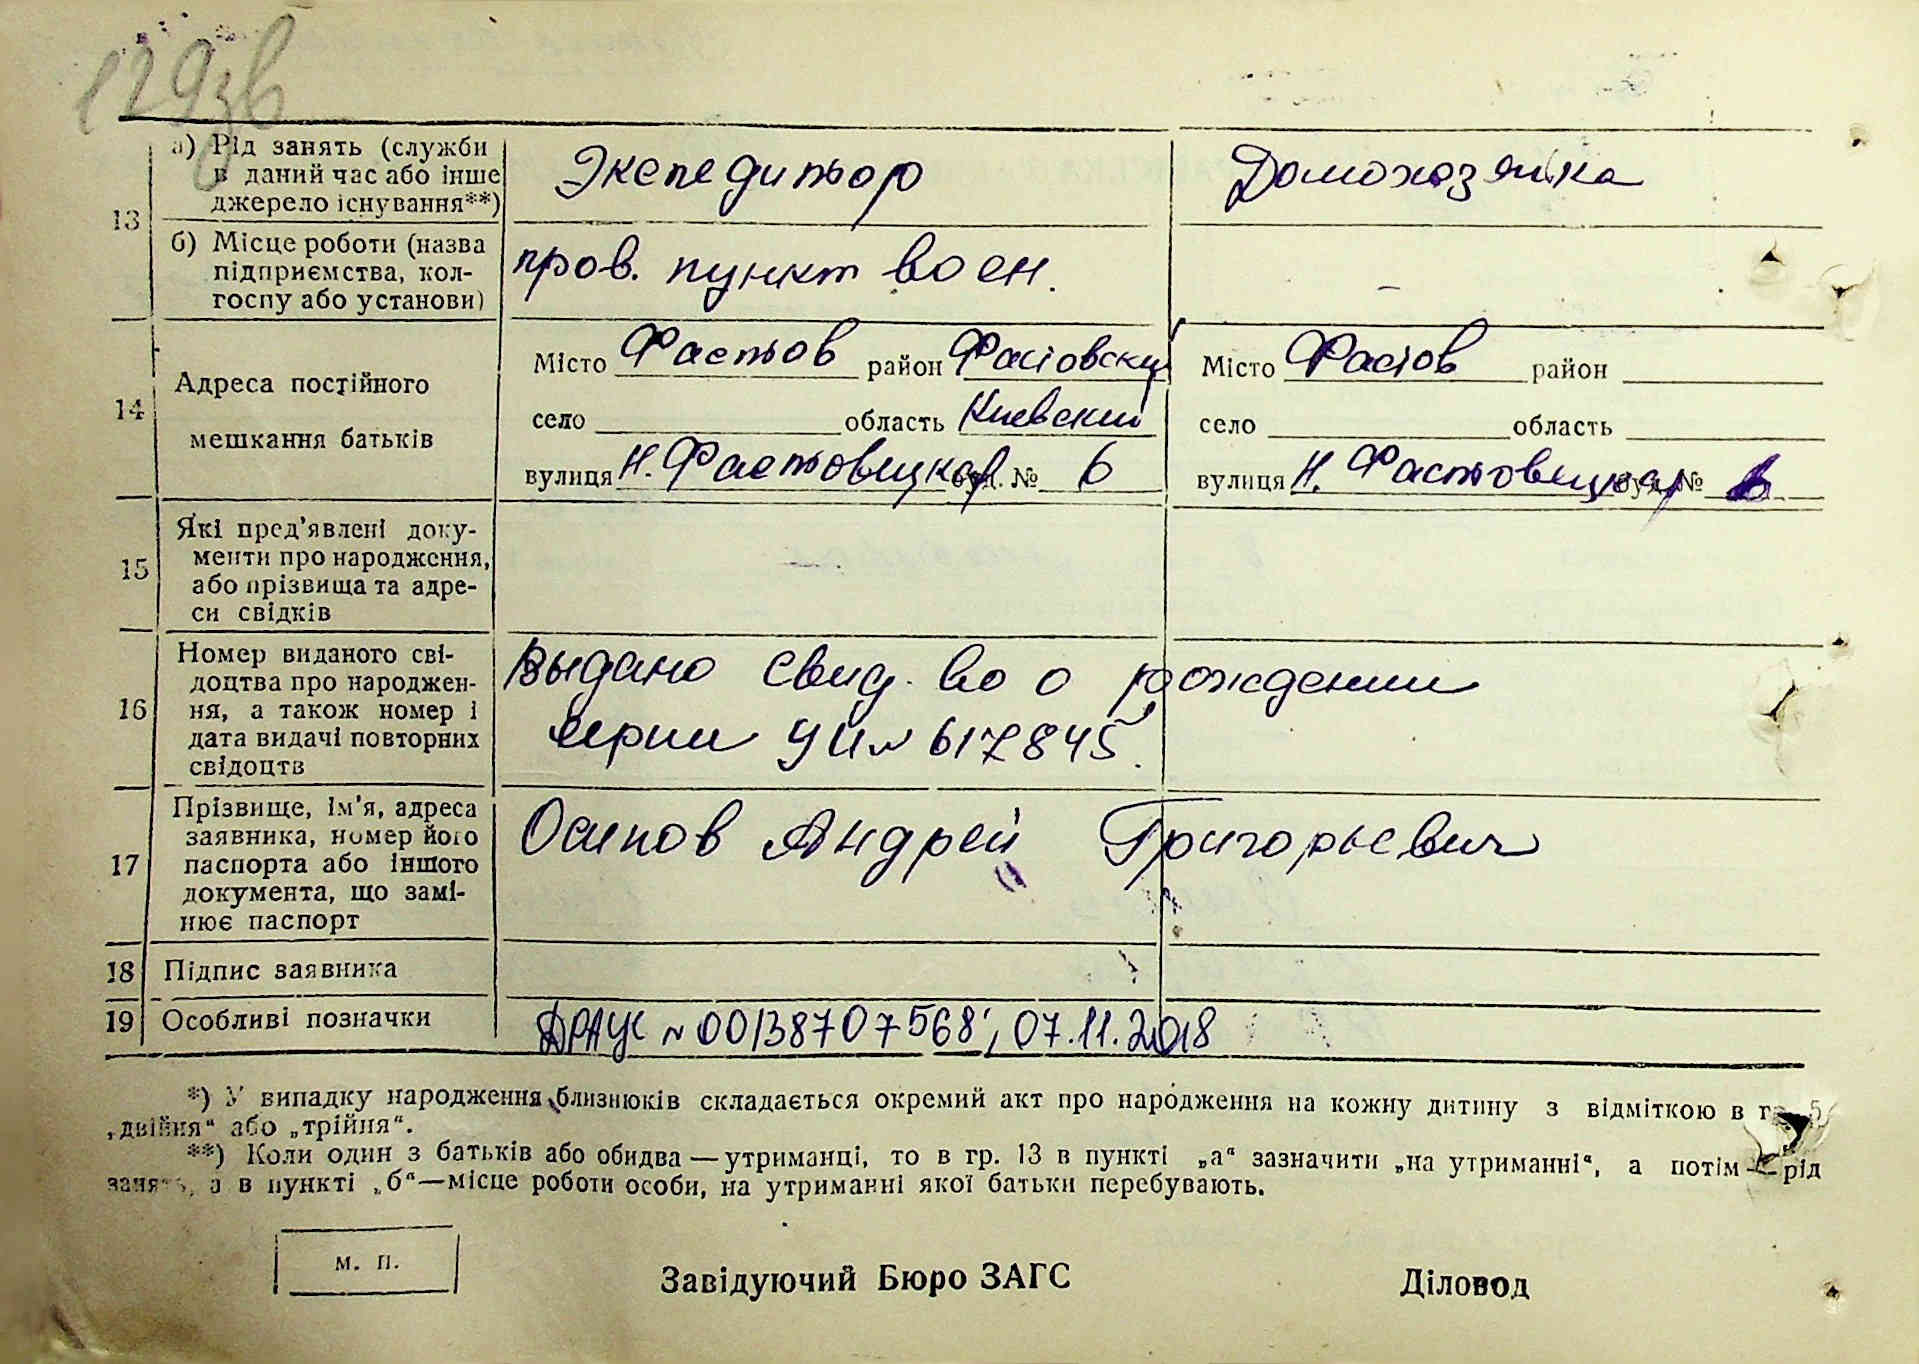 129зв
13
а) Рід занять (служби
в даний час або інше
джерело існування**)
Экспедитор
Домохозяйка
б) Місце роботи (назва
підприємства, кол-
госпу або установи)
пров. пункт воен.
–
14
Адреса постійного
мешкання батьків
Місто Фастов район Фастовский
село область Киевский
вулиця Н. Фастовецкая буд. № 6
Місто Фастов район
село область
вулиця Н. Фастовецкая буд. № 6
15
Які пред’явлені доку-
менти про народження,
або прізвища та адре-
си свідків
16
Номер виданого сві-
доцтва про народжен-
ня, а також номер і
дата видачі повторних
свідоцтв
Выдано свид-во о рождении
серии УЦ № 617845.
17
Прізвище, ім’я, адреса
заявника, номер його
паспорта або іншого
документа, що замі-
нює паспорт
Осипов Андрей Григорьевич
18 Підпис заявника
19 Особливі позначки
ДРАЦС № 00138707568; 07.11.2018
*) У випадку народження близнюків складається окремий акт про народження на кожну дитину з відміткою в гр. 5
„двійня“ або „трійня“.
**) Коли один з батьків або обидва — утриманці, то в гр. 13 в пункті „а“ зазначити „на утриманні“, а потім — рід
занять, а в пункті „б“—місце роботи особи, на утриманні якої батьки перебувають.
м. п.
Завідуючий Бюро ЗАГС
Діловод